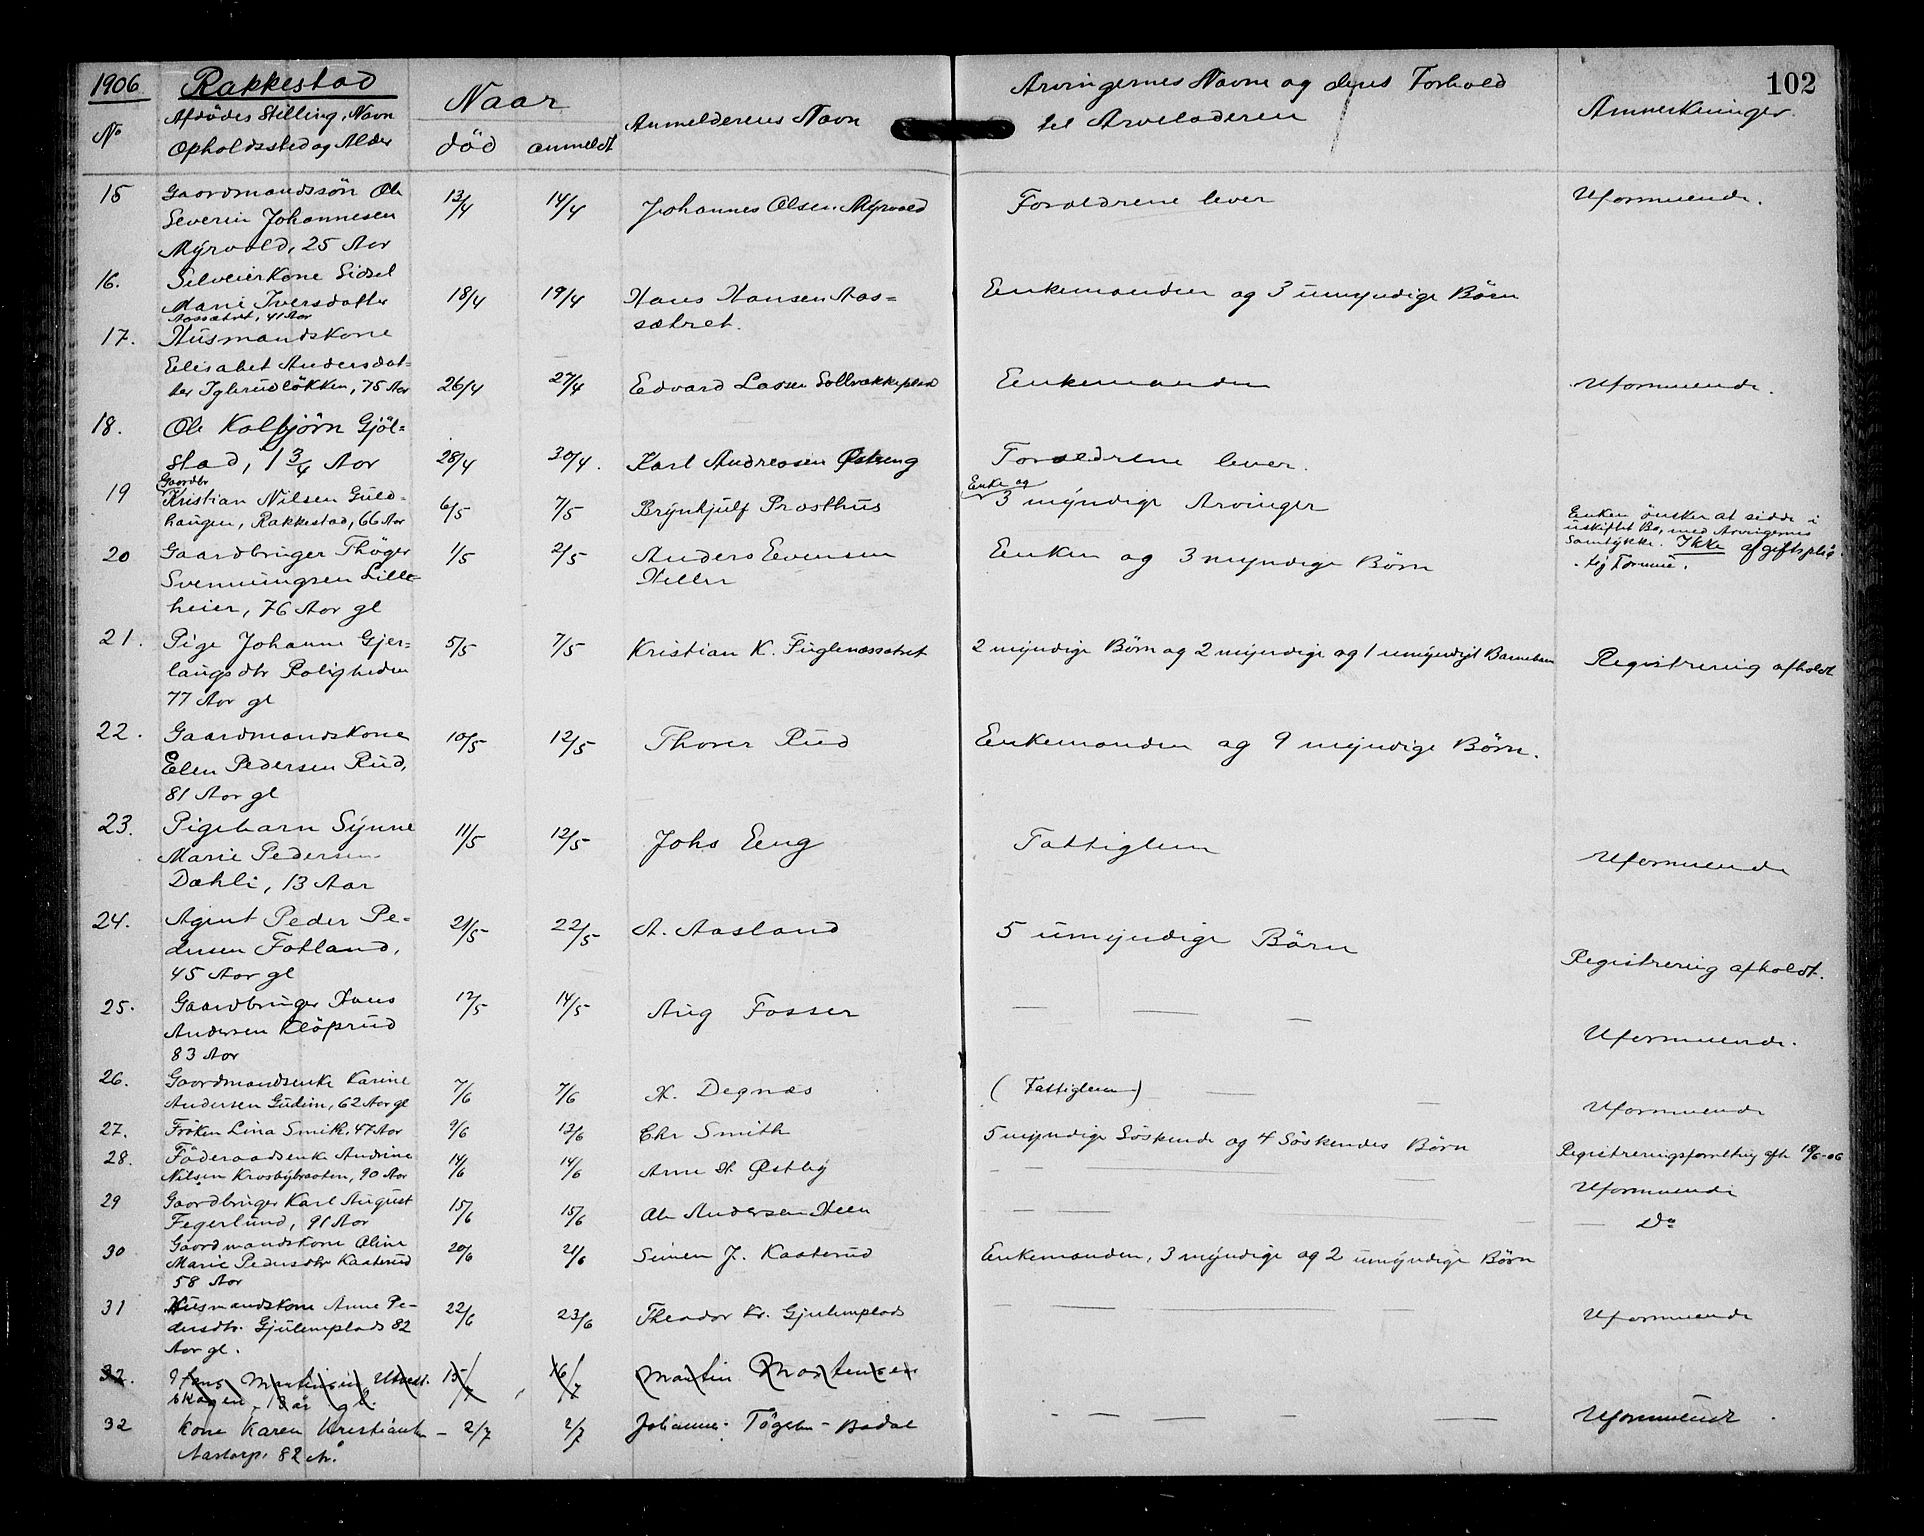 1906 Rakkestad
Naar
Arvingernes Navne og deres Forhold
102
No
Afdødes Stilling, Navn
Opholdssted og Alder
død anmeldt
Anmelderens Navn
til Arveladeren
Anmerkninger
15 Gaardmandssøn Ole
Severin Johannesen
Myrvold, 25 Aar
13/4 14/4 Johannes Olsen Myrvold Forældrene lever Uformuende.
16. Selveierkone Sidsel
Marie Iversdatter
Aassætret, 41 Aar
18/4 19/4 Hans Hansen Aas=
sætret.
Enkemanden og 3 umyndige Børn
17. Husmandskone
Elisabet Andersdat=
ter Iglerudløkken, 75 Aar
26/4 27/4 Edvard Larsen Enkemanden Uformuende.
18. Ole Kolbjørn Gjøl=
stad, 1 3/4 Aar
28/4 30/4. Karl Andreasen Østreng Forældrene lever.
19 Gaardbr
Kristian Nilsen Guld=
haugen, Rakkestad, 66 Aar
6/5 7/5 Brynhjulf Prosthus Enke og
3 myndige Arvinger
Enken ønsker at sidde i
uskiftet Bo, med Arvingernes
Samtykke. Ikke afgiftsplig
tig Formue.
20 Gaardbruger Thøger
Svenningsen Lille=
heier, 76 Aar gl
1/5 2/5 Anders Evensen
Heller
Enken og 3 myndige Børn
21. Pige Johanne Gjer=
laugsdtr Roligheden
77 Aar gl
5/5 7/5 Kristian K. Fuglenæssætret 2 myndige Børn og 2 myndige og 1 umyndigt Barnebarn Registrering afholdt
22. Gaardmandskone
Elen Pedersen Rud,
81 Aar gl
10/5 12/5 Thorer Rud Enkemanden og 9 myndige Børn.
23. Pigebarn Synne
Marie Pedersen
Dæhli, 13 Aar
11/5 12/5 Johs Eng Fattiglem Uformuende
24. Agent Peder Pe=
dersen Fotland,
45 Aar gl
21/5 22/5 A. Aasland 5 umyndige Børn Registrering afholdt.
25. Gaardbruger Hans
Andersen Kløprud
83 Aar
12/5 14/5 Aug Fosser — — — Uformuende.
26. Gaardmandsenke Karine
Andersen Gudim, 62 Aar gl
7/6 7/6 H. Degnæs (Fattiglem) — — Uformuende
27. Frøken Lina Smith, 47 Aar
9/6 13/6 Chr Smith 5 myndige Søskende og 4 Søskendes Børn Registreringsforretning afh 18/6-06
28. Føderaadsenke Andrine
Nilsen Krosbybraaten, 90 Aar
14/6 14/6 Arne H. Østby — — Uformuende
29 Gaardbruger Karl August
Fegerlund, 91 Aar
15/6 15/6 Ole Andersen Heen — — — — — Do
30 Gaardmandskone Oline
Marie Pedersdtr Kaaterud
58 Aar
20/6 21/6 Simen J. Kaaterud Enkemanden, 3 myndige og 2 umyndige Børn
31 Husmandskone Anne Pe=
dersdtr. Gjulemplads 82
Aar gl.
22/6 23/6 Theodor Kr. Gjulemplads — — — — Uformuende
32. Hans Martinsen
skogen, 13 år gl.
15/7 16/7 Martin Mortensen
32 Kone Karen Kristiansen
Aastorp. 82 År.
— 2/7 2/7 Johannes — Bødal — — — — — Uformuende.